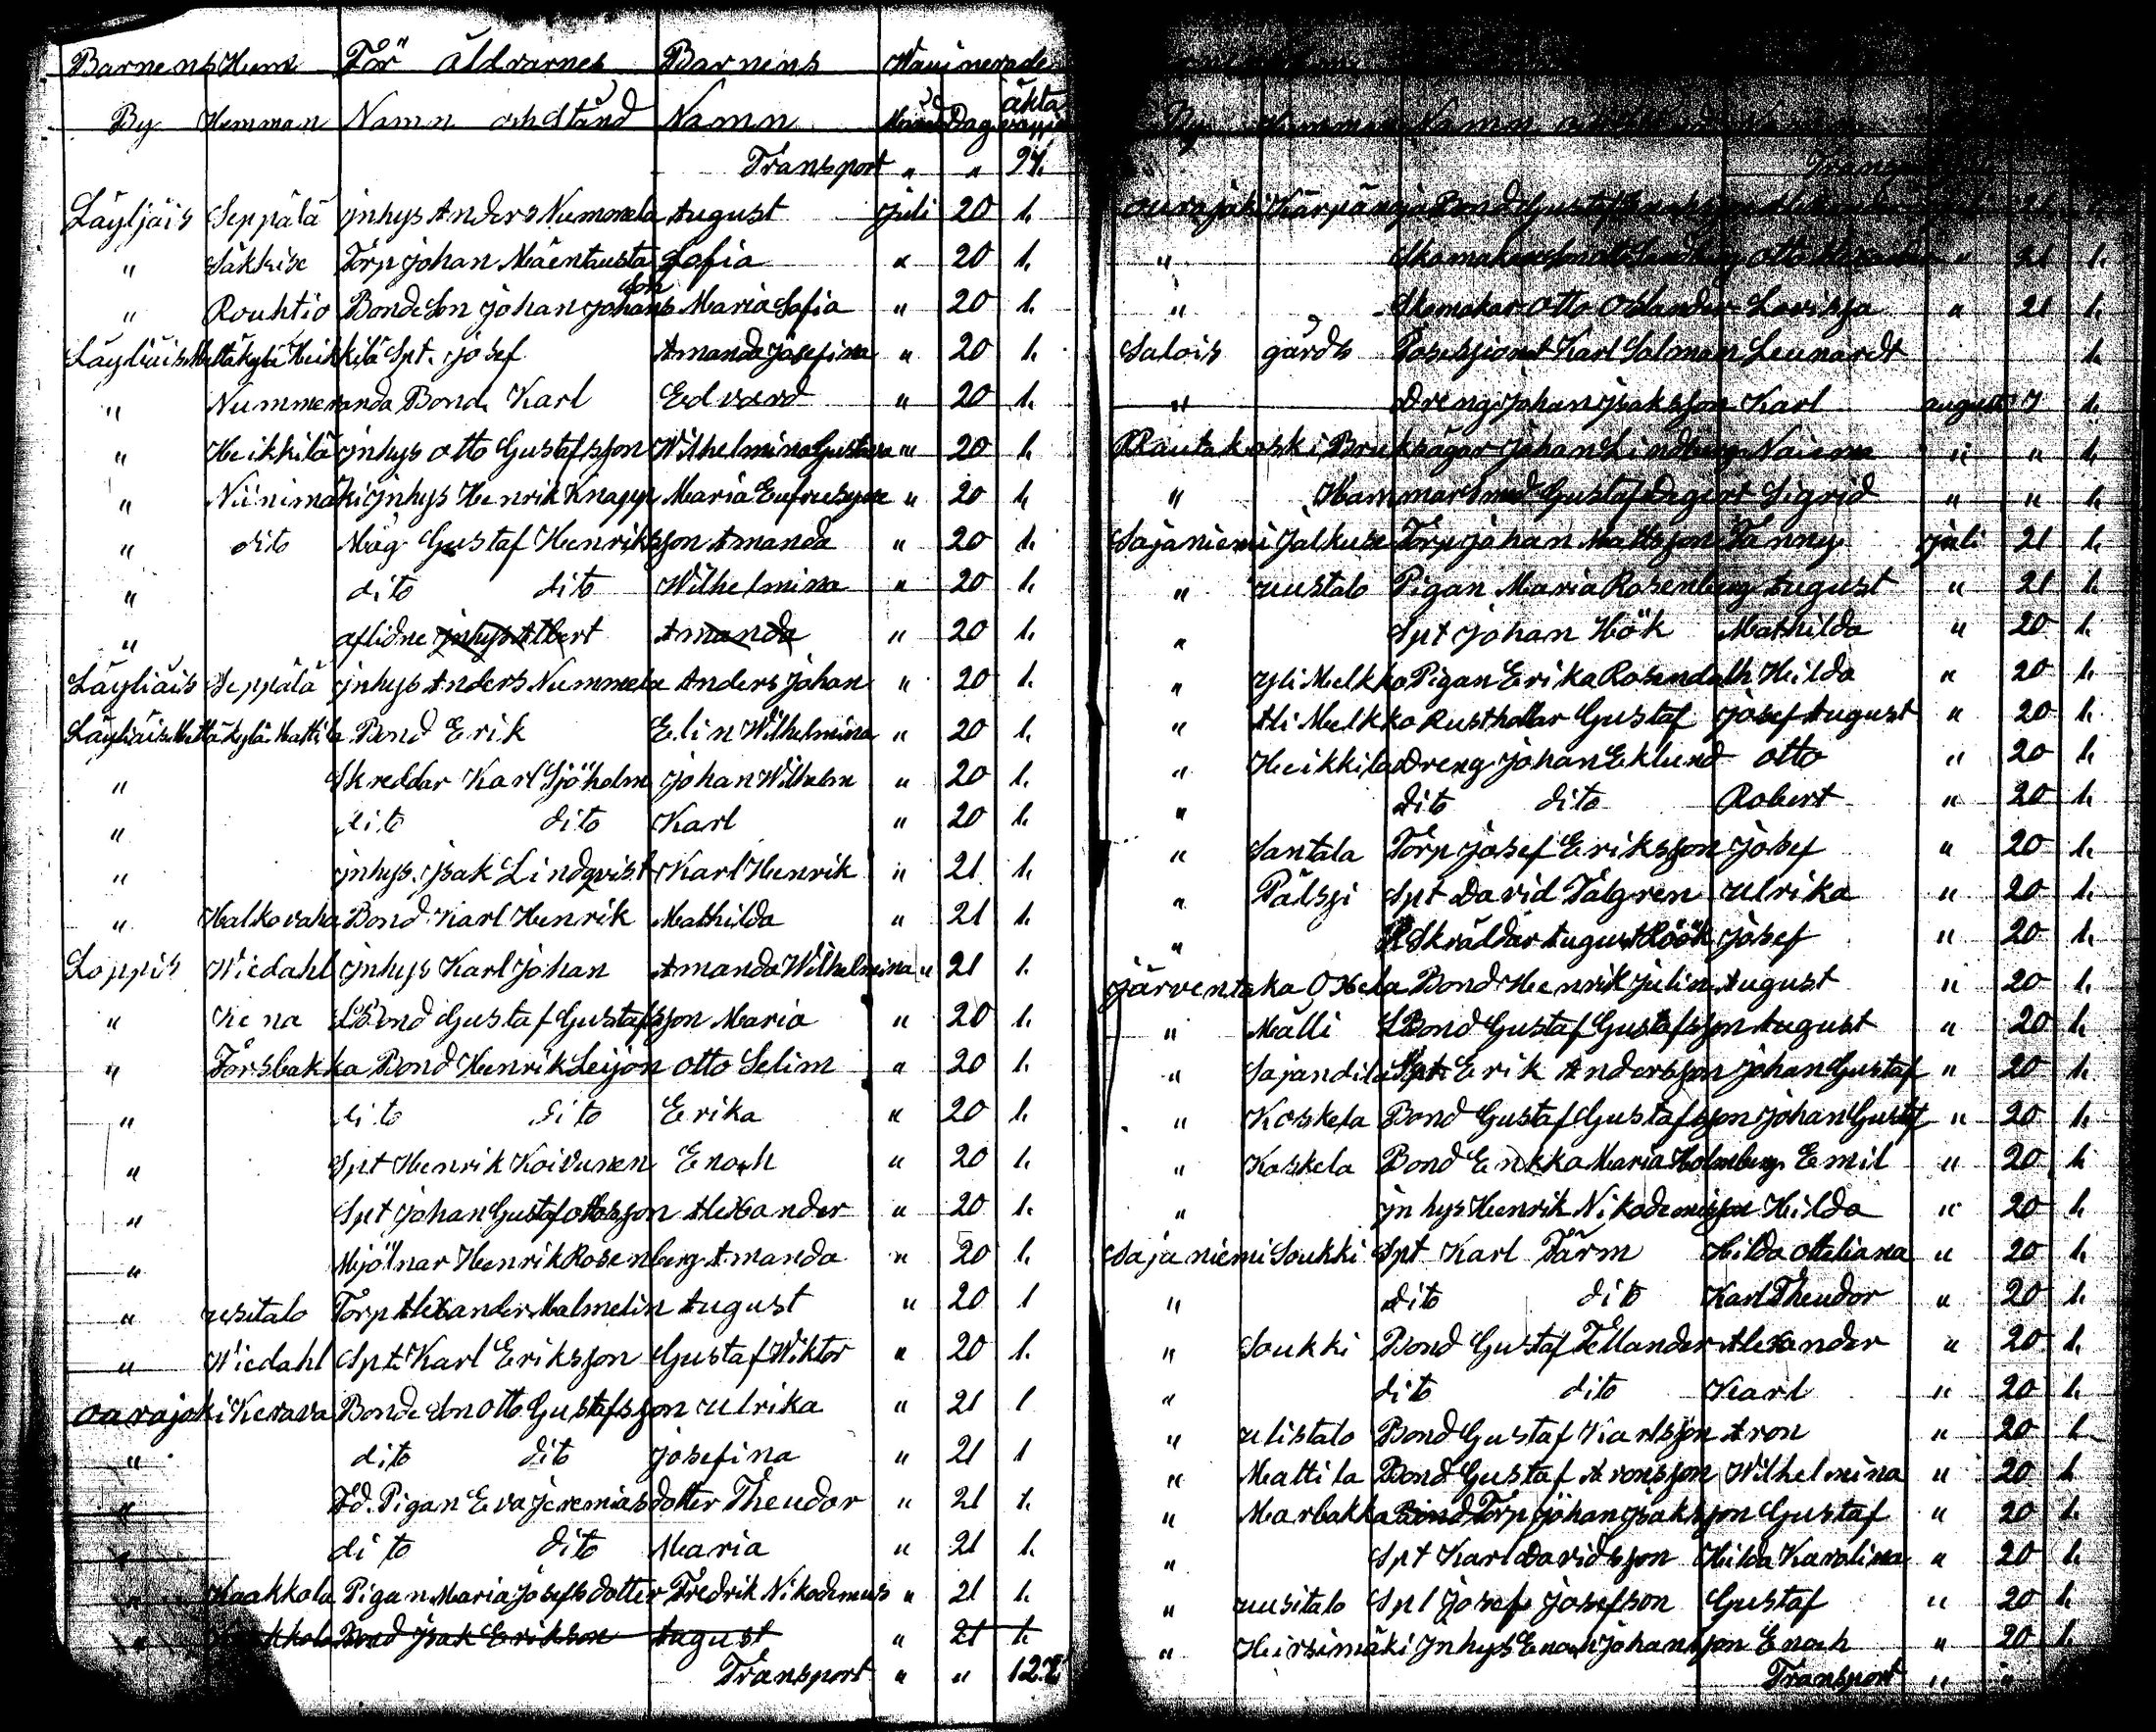 Barnens Hem För äldrarnes Barnens Waccinerade
By Hemman Namn och Stånd Namn Månad Dag äkta
Transport " "
Läyljäis Seppälä jnhys Anders Nummela August juli 20 1.
" Säkkise Torp johan Mäentausta Sofia " 20 1.
" Rouhtio Bonde Son johan johansson Maria Sofia " 20 1.
Läyliäis Mettäkylä Heikkilä Spt. josef Amanda josefina " 20 1.
" Nummenanda Bond. Karl Edvard " 20 1.
" Heikkilä jnhys otto Gustafsson Wilhelmina Gustava " 20 1.
" Niinimäki jnhys Henrik Knapp Maria " 20 1.
" dito Måg Gustaf Henriksson Amanda " 20 1.
" dito dito Wilhelmina " 20 1.
" aflidne jnhys Albert Amanda " 20 1.
Läyliäis Seppälä jnhys Anders Nummela Anders johan " 20 1.
Läyliäis Mettäkylä Mattila Bond Erik Elin Wilhelmina " 20 1.
" Skreddar Karl Sjöholm johan Wilhelm " 20 1.
" dito dito Karl " 20 1.
" jnhys. jsak Lindqvist Karl Henrik " 21 1.
" Halkovaha Bond Karl Henrik Mathilda " 21 1.
Loppis Wiedahl jnhys Karl johan Amanda Wilhelmina " 21 1.
" Kena Bond Gustaf Gustafsson Maria " 20 1.
" Forsbakka Bond Henrik Leijon otto Selim " 20 1.
" dito dito Erika " 20 1.
" Spt Henrik Koivunen Enoch " 20 1.
" Spt johan Gustaf ottosson Alexander " 20 1.
" Mjölnar Henrik Rosenberg Amanda " 20 1.
" usitalo Torp Alexander Malmelin August " 20 1
" Wiedahl Spt. Karl Eriksson Gustaf Wiktor " 20 1.
oarajoki Kerava Bonde Son otto Gustafsson ulrika " 21 1
" dito dito josefina " 21 1
" Fd. Pigan Eva jeremiasdotter Theudor " 21 1.
" dito dito Maria " 21 1.
" Kaakkola Pigan Maria josefsdotter Fredrik Nikodemus " 21 1.
" Bond jsak Erikson August " 21 1.
Transport " "
By Hemman Namn
Bond Gustaf 21 1.
" Skomakar otto " 21 1.
" Skomakar otto Lovissa " 21 1.
Salois gårds Possessionat Karl Salman Leunardt 1.
" Dreng johan jsaksson Karl august 7 1.
Rautakoski Bruksägar johan Lindberg Naiema " " 1.
" Hammar Smed Gustaf Dagert Sigrid " " 1.
Sajaniemi jalkuse Torp johan Mattsson Fanny juli 21 1.
" uustalo Pigan Maria Rosenberg August " 21 1.
" Spt johan Hök Mathilda " 20 1.
" yli Melkko Pigan Erika Rosendalh Hilda " 20 1.
" Ali Melkko Rusthollar Gustaf josef August " 20 1.
" Heikkila Dreng johan Eklund otto " 20 1.
" dito dito Robert " 20 1.
" Santala Torp josef Eriksson josef " 20 1.
" Pälssi Spt David Tålgren ulrika " 20 1.
" Skräddar August Höök josef " 20 1.
järventaka O Hela Bond Henrik julin August " 20 1.
" Mälli Bond Gustaf Gustafsson August " 20 1.
" Sajandila Spt Erik Andersson johan Gustaf " 20 1.
" Koskela Bond Gustaf Gustafsson johan Gustaf " 20 1.
" Koskela Bond Enkka Maria Holmberg Emil " 20 1.
" jnhys Henrik Nikodemisson Hilda " 20 1.
Sajaniemi Soukki Spt Karl Färm Hilda otteliana " 20 1.
" dito dito Karl Theudor " 20 1.
" Soukki Bond Gustaf Tellander Alexander " 20 1.
" dito dito Karl " 20 1.
" ulistalo Bond Gustaf Karlsson Aron " 20 1.
" Mattila Bond Gustaf Aronsson Wilhelmina " 20 1.
" Marbakka Bond Torp johan jsaksson Gustaf " 20 1.
" Spt Karl Davidsson Hilda Karolina " 20 1.
" uusitalo Spt josef josefson Gustaf " 20 1.
" Heirsimäki jnhys Enoch johansson Enoch " 20 1.
Transport " "